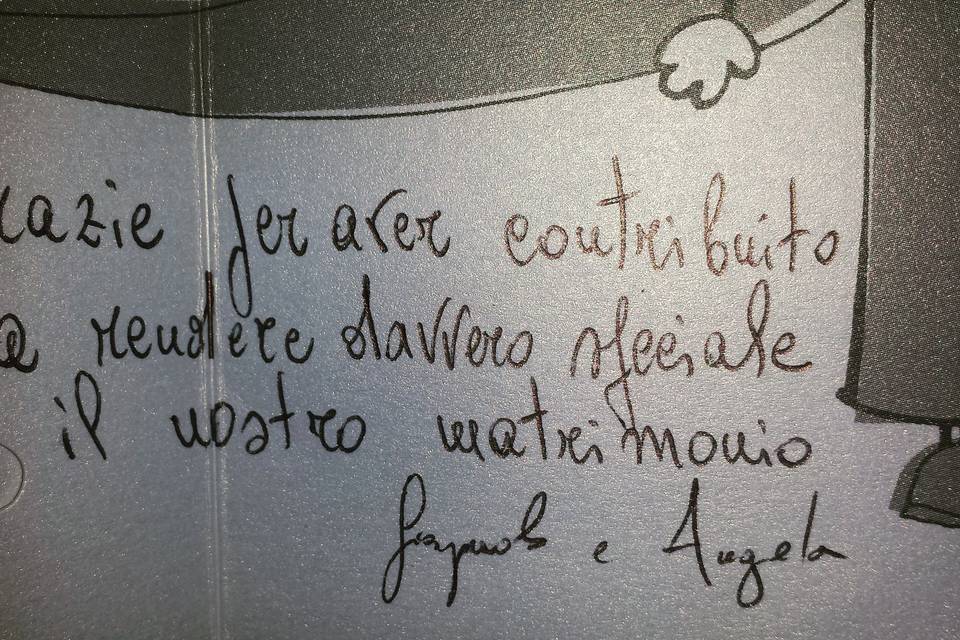 razie per aver contribuito
a rendere davvero speciale
il nostro matrimonio
e Angela